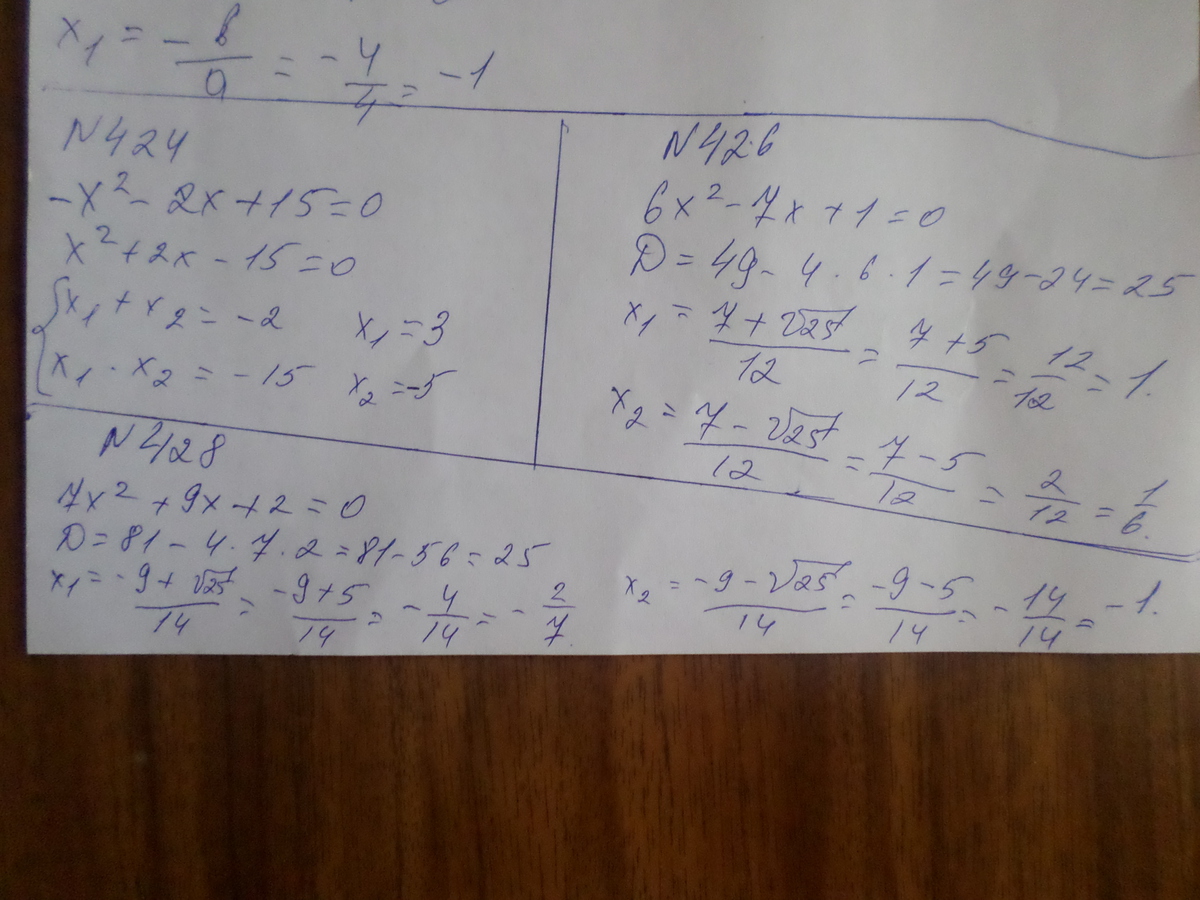 x₁ = -b/a = -4/4 = -1
N424
-x² - 2x + 15 = 0
x² + 2x - 15 = 0
{ x₁ + x₂ = -2    x₁ = 3
x₁ · x₂ = -15    x₂ = -5
N426
6x² - 7x + 1 = 0
D = 49 - 4 · 6 · 1 = 49 - 24 = 25
x₁ = (7 + √25)/12 = (7 + 5)/12 = 12/12 = 1.
x₂ = (7 - √25)/12 = (7 - 5)/12 = 2/12 = 1/6.
N428
7x² + 9x + 2 = 0
D = 81 - 4 · 7 · 2 = 81 - 56 = 25
x₁ = (-9 + √25)/14 = (-9 + 5)/14 = -4/14 = -2/7.    x₂ = (-9 - √25)/14 = (-9 - 5)/14 = -14/14 = -1.